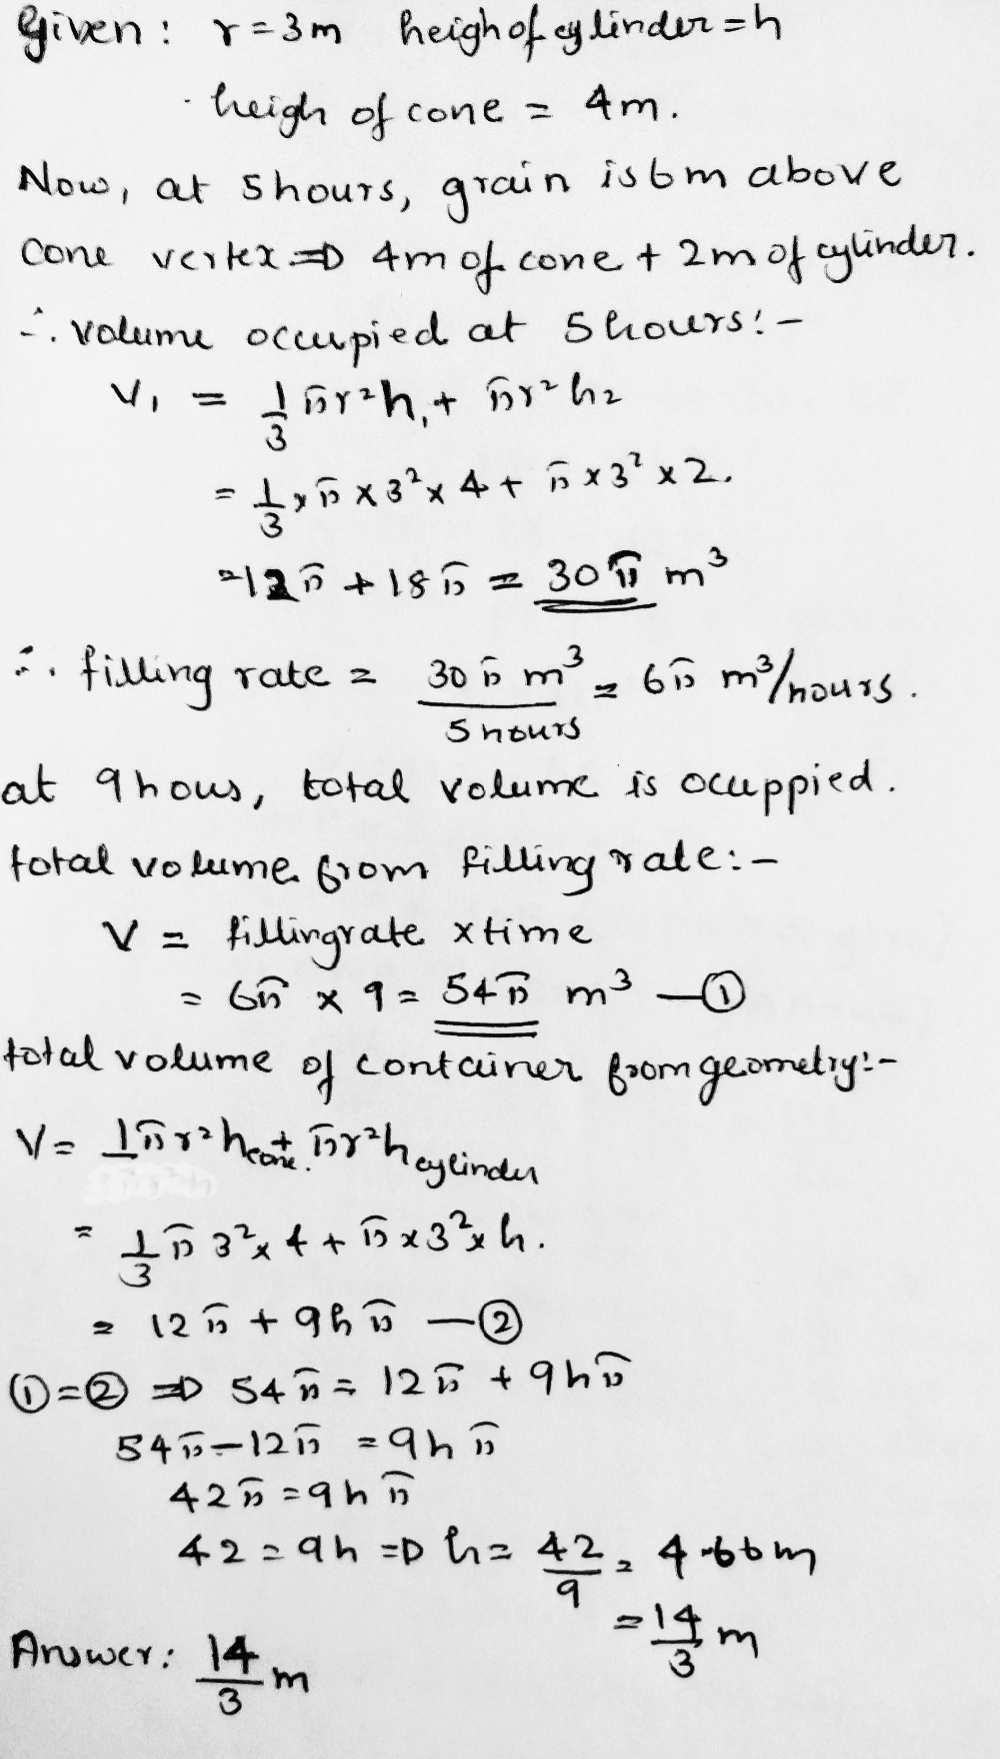 Given: r=3m heigh of cylinder=h
heigh of cone = 4m.
Now, at 5hours, grain is 6m above
Cone vertex ⇒ 4m of cone + 2m of cylinder.
∴ volume occupied at 5hours:-
V₁ = 1/3 πr²h₁ + πr²h₂
= 1/3 × π × 3² × 4 + π × 3² × 2.
=12π + 18π = 30π m³
∴ filling rate = 30π m³/5hours = 6π m³/hours.
at 9hous, total volume is ocuppied.
total volume from filling rate:-
V = fillingrate × time
= 6π × 9 = 54π m³ —①
total volume of container from geometry:-
V= 1πr²hcone. + πr²hcylinder
= 1/3 π 3² × 4 + π × 3² × h.
= 12π + 9hπ —②
①=② ⇒ 54π = 12π + 9hπ
54π-12π = 9hπ
42π = 9hπ
42 = 9h ⇒ h = 42/9 = 4.66m
= 14/3 m
Answer: 14/3 m